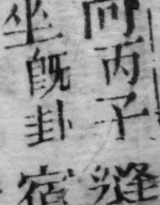 丙子縫
坐既卦宿